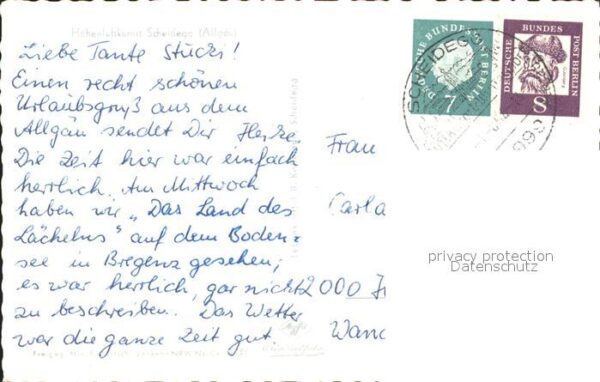 Höhenluftkurort Scheidegg (Allgäu)
Liebe Tante Stucki!
Einen recht schönen
Urlaubsgruß aus dem
Allgäu sendet Dir Heike.
Die Zeit hier war einfach
herrlich. Am Mittwoch
haben wir „Das Land des
Lächelns" auf dem Boden-
see in Bregenz gesehen;
es war herrlich, gar nicht
zu beschreiben. Das Wetter
war die ganze Zeit gut
Frau
Carla
2000
Wand
DEUTSCHE BUNDESPOST BERLIN
7
DEUTSCHE BUNDESPOST BERLIN
8
SCHEIDEGG
8999
privacy protection
Datenschutz